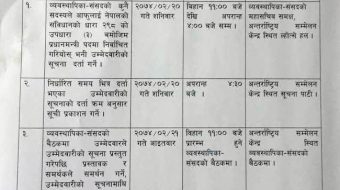 १. व्यवस्थापिका-संसदको कुनै २०७४/०२/२० बिहान ११:०० बजे व्यवस्थापिका-संसदको
सदस्यले आफूलाई नेपालको गते शनिबार देखि अपरान्ह महासचिव समक्ष,
संविधानको धारा २९८ को ४:०० बजे सम्म । अन्तर्राष्ट्रिय सम्मेलन
उपधारा (३) बमोजिम केन्द्र स्थित ल्होत्से हल ।
प्रधानमन्त्री पदमा निर्वाचित
गरियोस् भनी उम्मेदवारीको
सूचना दर्ता गर्ने ।
२. निर्धारित समय भित्र दर्ता २०७४/०२/२० अपरान्ह ४:३० अन्तर्राष्ट्रिय सम्मेलन
भएका उम्मेदवारीको गते शनिबार बजे । केन्द्र स्थित सूचना पाटी ।
सूचनाको दर्ता क्रम अनुसार
सूची प्रकाशन गर्ने ।
३. व्यवस्थापिका-संसदको २०७४/०२/२१ बिहान ११:०० बजे अन्तर्राष्ट्रिय सम्मेलन
बैठकमा उम्मेदवारले गते आइतबार प्रारम्भ हुने केन्द्र स्थित
उम्मेदवारीको सूचना प्रस्तुत व्यवस्थापिका- व्यवस्थापिका-संसदको
गरेपछि प्रस्तावक र संसदको बैठकमा ।
समर्थकले समर्थन गर्ने, बैठकमा ।
उम्मेदवारीको सूचनामाथि